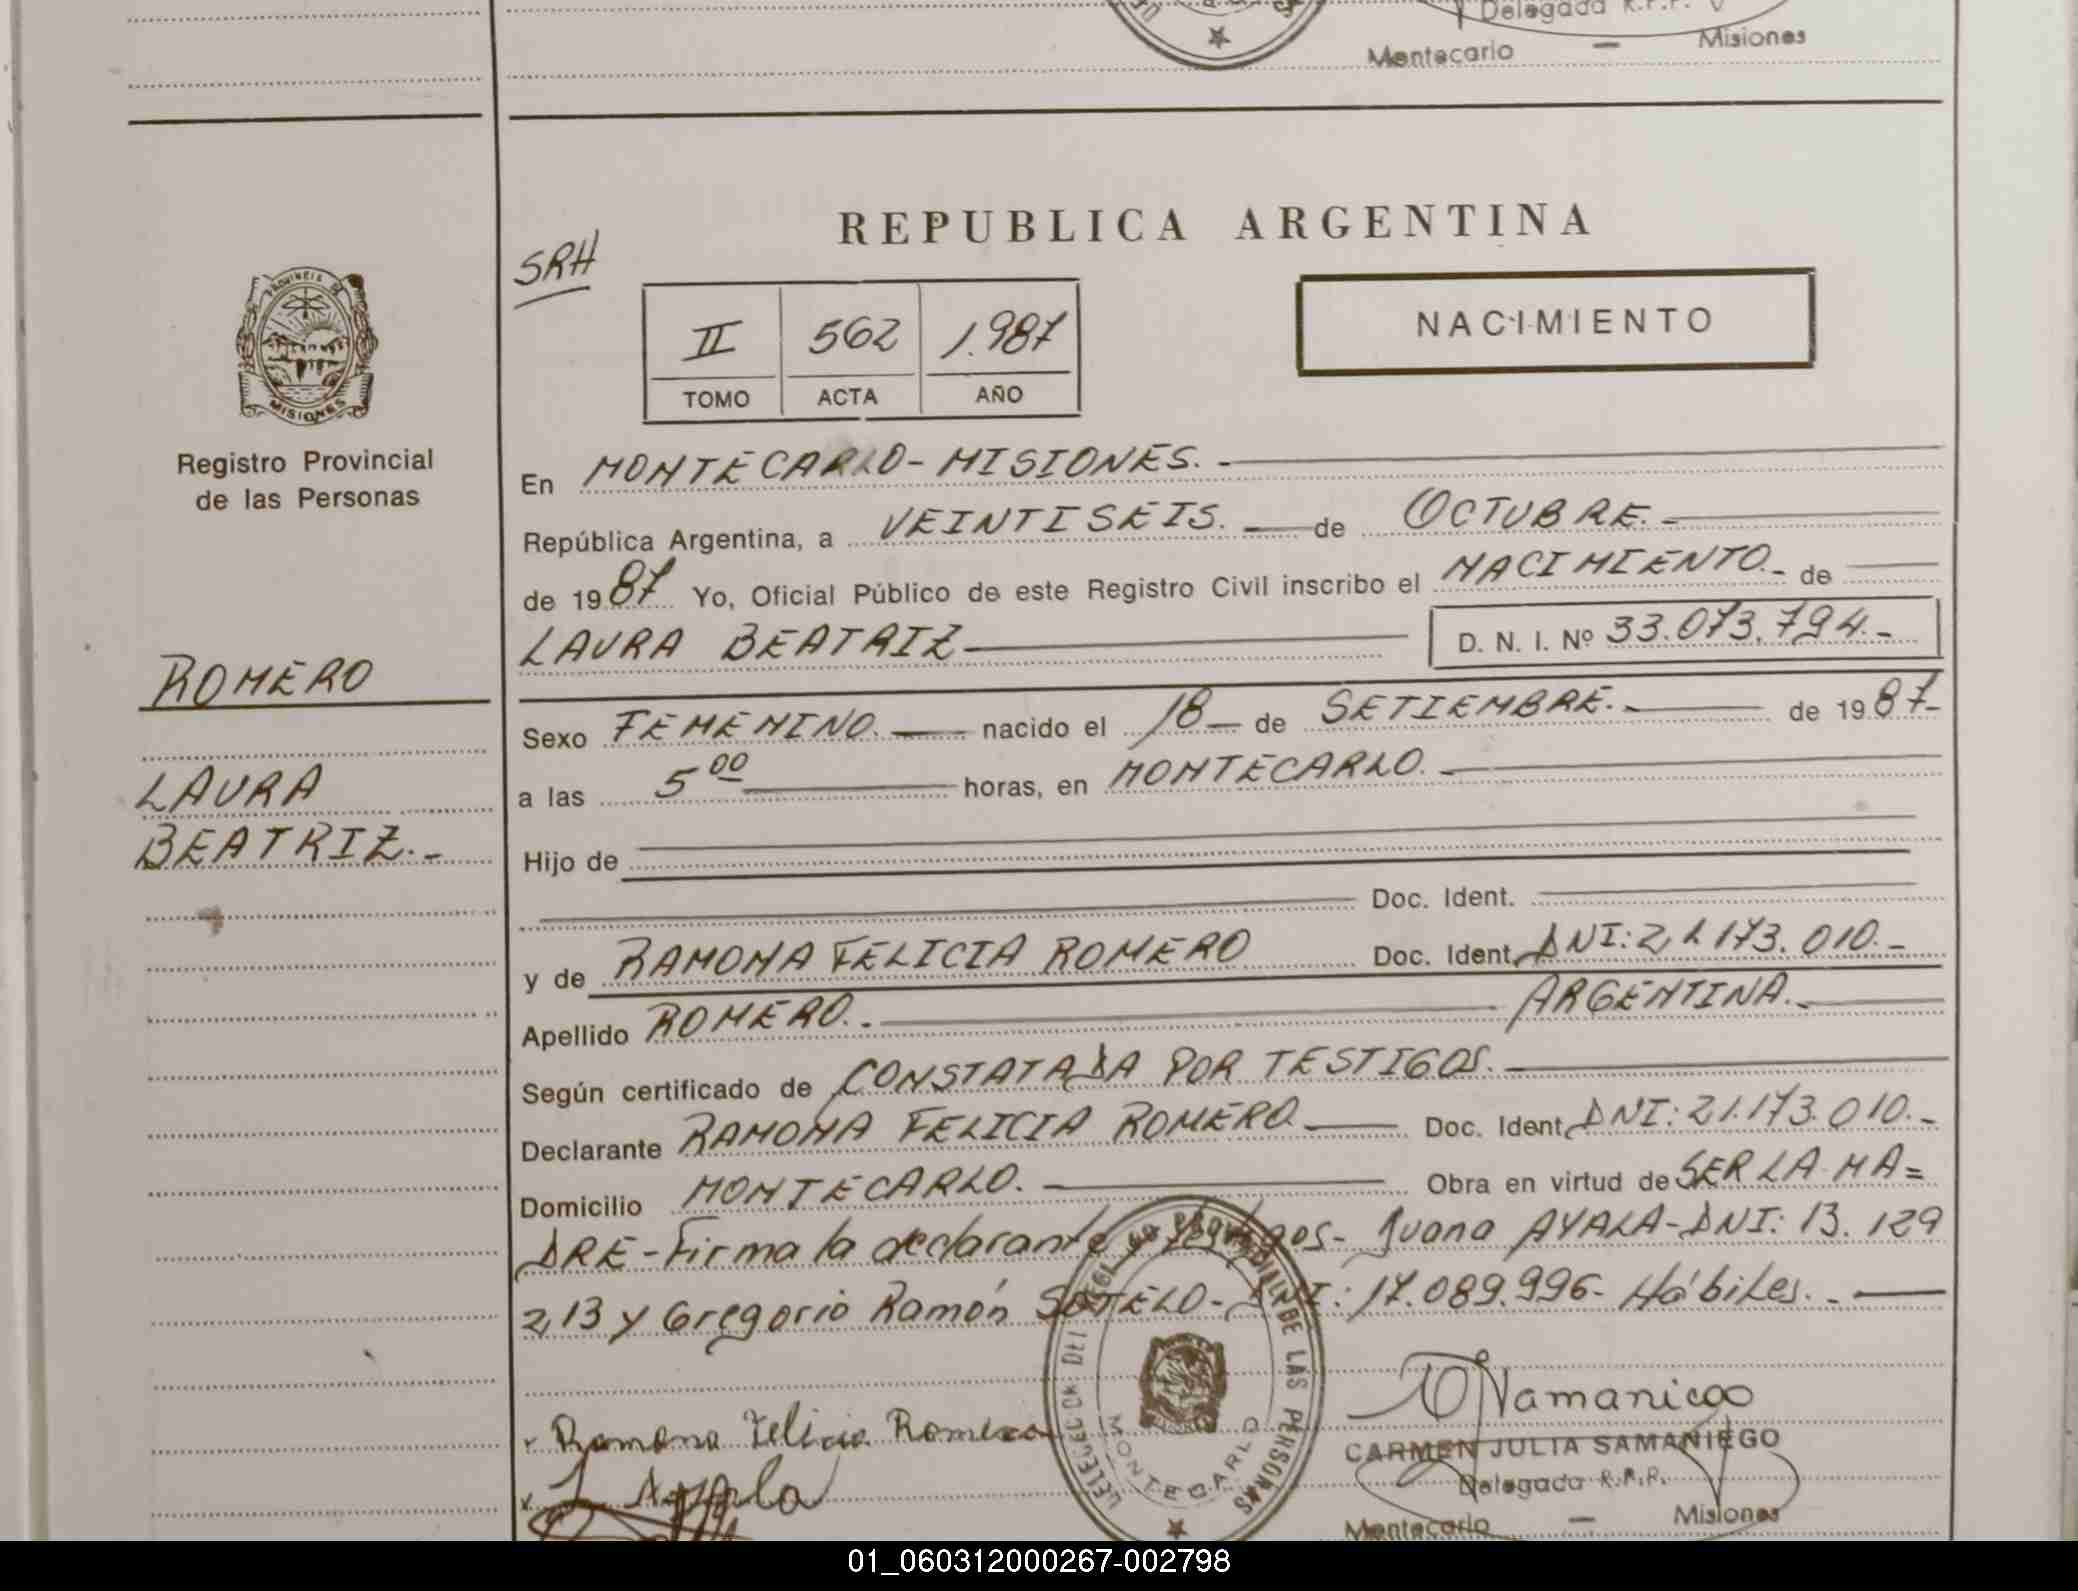 Delegada R.P.P.
Montecarlo — Misiones
REPUBLICA ARGENTINA
SRH
PROVINCIA DE
MISIONES
II 562 1.987
TOMO ACTA AÑO
NACIMIENTO
Registro Provincial
de las Personas
En MONTECARLO-MISIONES.-
República Argentina, a VEINTISEIS. — de OCTUBRE.-
de 1987 Yo, Oficial Público de este Registro Civil inscribo el NACIMIENTO.- de
LAURA BEATRIZ D. N. I. Nº 33.073.794.-
ROMERO
LAURA
BEATRIZ.-
Sexo FEMENINO. — nacido el 18 — de SETIEMBRE.- de 1987-
a las 5 00 horas, en MONTECARLO.-
Hijo de
Doc. Ident.
y de RAMONA FELICIA ROMERO Doc. Ident. DNI: 21.173.010.-
Apellido ROMERO.- ARGENTINA.-
Según certificado de CONSTATADA POR TESTIGOS.
Declarante RAMONA FELICIA ROMERO. — Doc. Ident. DNI: 21.173.010.-
Domicilio MONTECARLO. — Obra en virtud de SER LA MA=
DRE-Firma la declarante y testigos- Juana AYALA-DNI: 13.129
213 y Gregorio Ramón SOTELO- DNI: 17.089.996- Hábiles.-
DELEGACION DEL REGISTRO PROVINCIAL DE LAS PERSONAS
MONTECARLO
Ramona Felicia Romero
J Ayala
Samaniego
CARMEN JULIA SAMANIEGO
Delegada R.P.P.
Montecarlo — Misiones
01_060312000267-002798